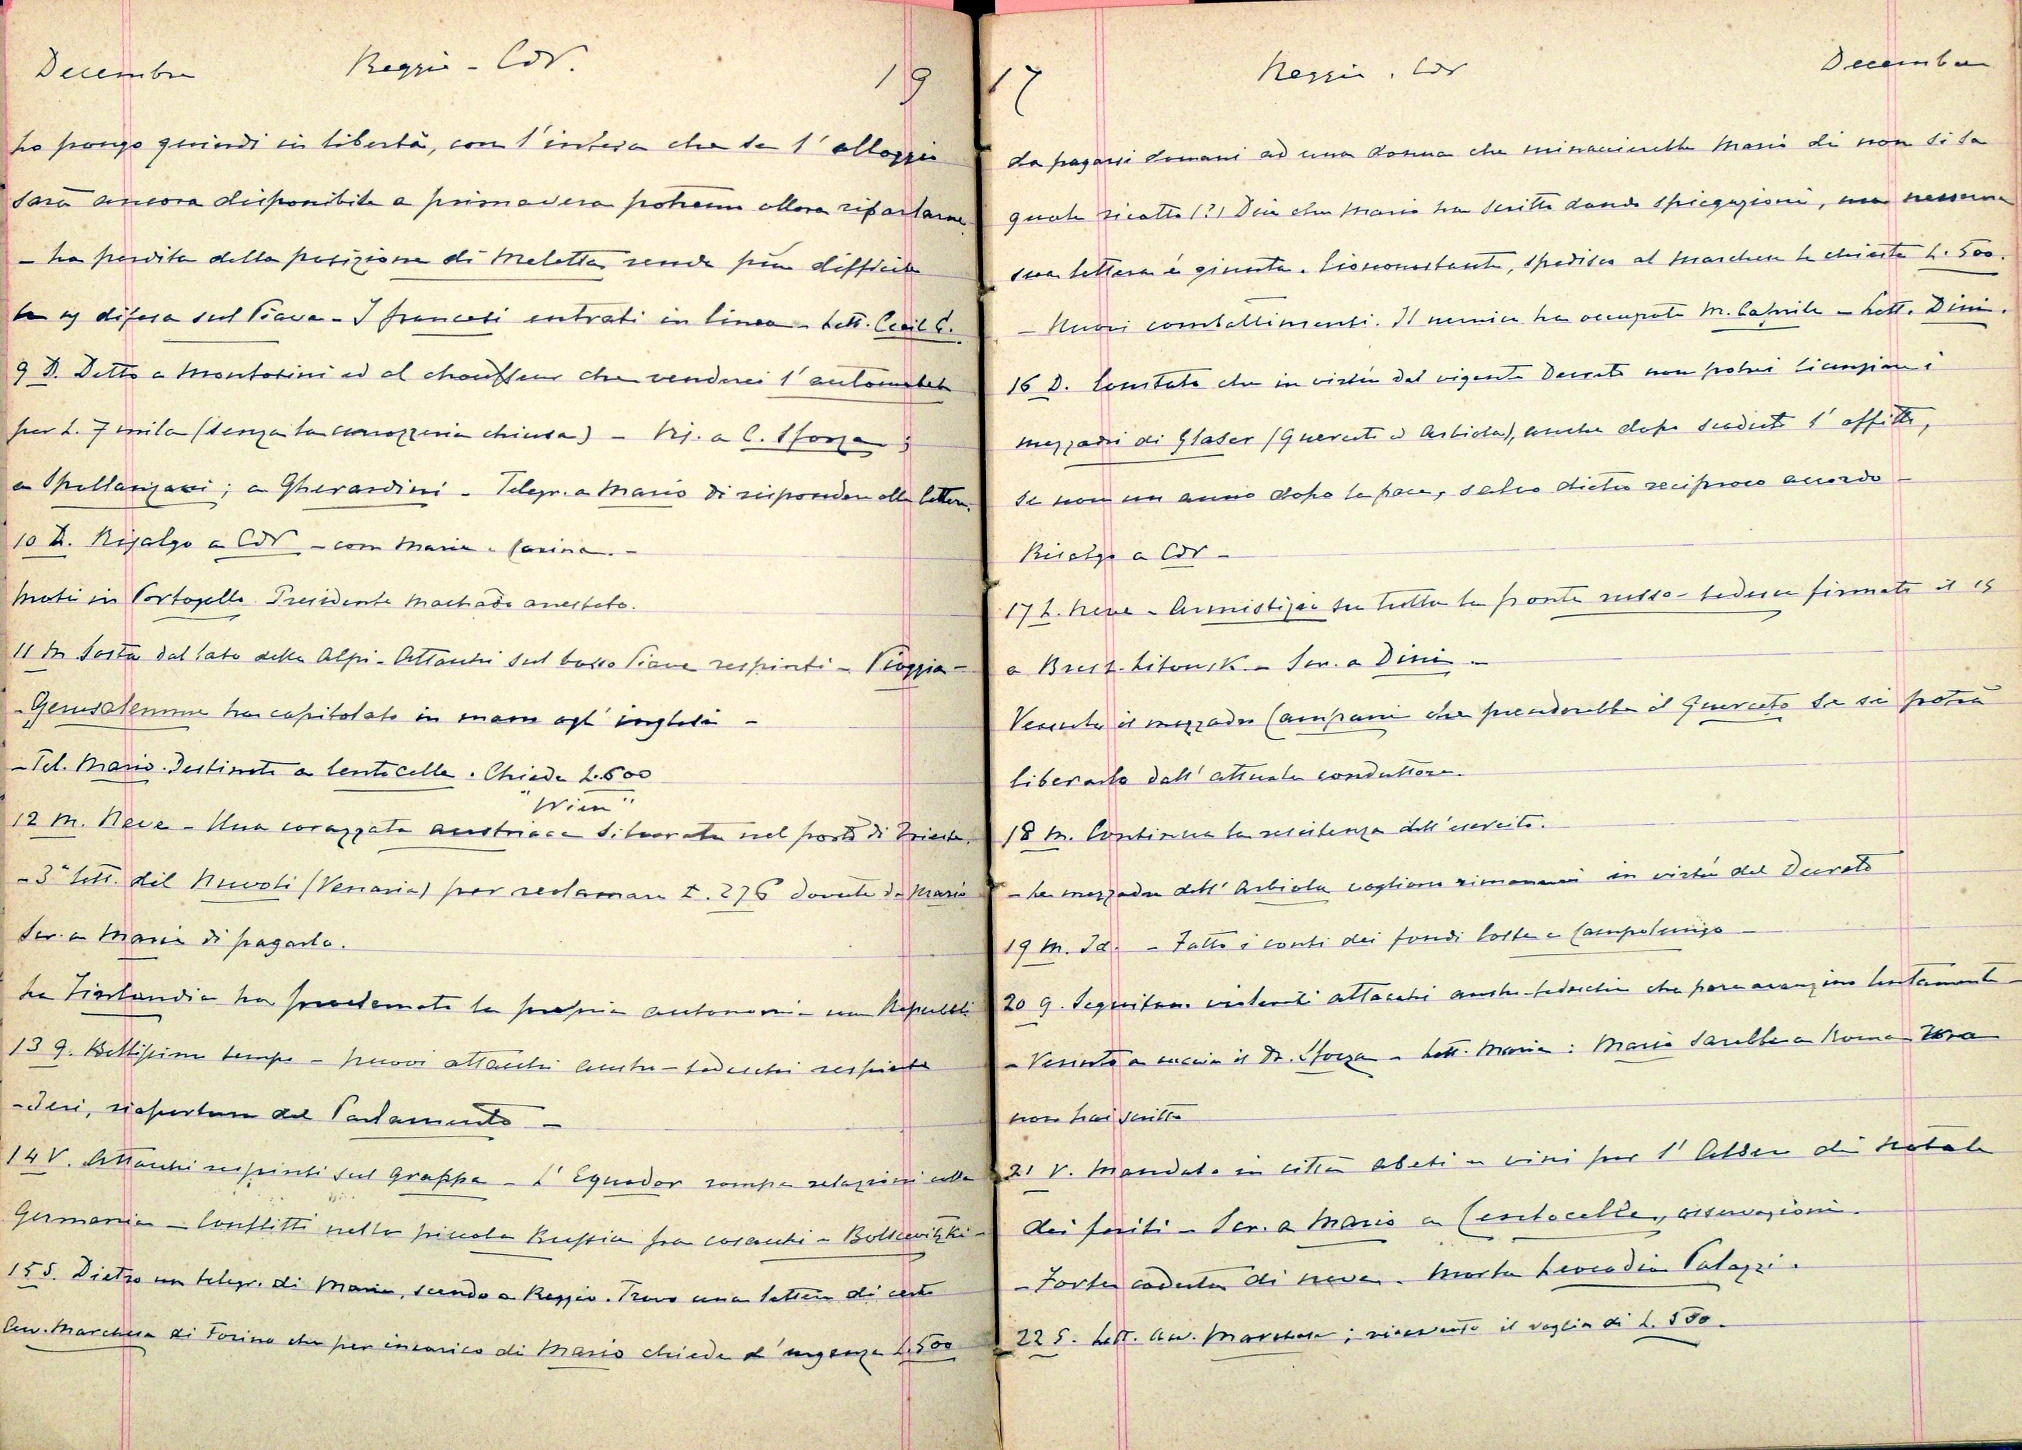 Decembre Reggio - CdV. 19
lo pongo quindi in libertà, con l'intesa che se l'alloggio
sarà ancora disponibile a primavera potremo allora riparlarne.
- La perdita della posizione di Meletta rende più difficile
la difesa sul Piave - I francesi entrati in linea - Lett. Cecil C.
9 D. Detto a Montorini ed al chauffeur che venderei l'automobile
per L. 7 mila (senza la carrozzeria chiusa) - Risp. a C. Sforza;
a Spallanzani; a Gherardini - Telegr. a Mario di rispondere alle lettere.
10 L. Risalgo a CdV - con Maria e
Moti in Portogallo. Presidente Machado arrestato.
11 M Sosta dal lato delle Alpi - Attacchi sul basso Piave respinti - Pioggia -
- Gerusalemme ha capitolato in mano agl' inglesi -
- Tel. Mario. Destinato a Centocelle. Chiede L. 500
"Wien"
12 M. Neve - Una corazzata austriaca silurata nel porto di Trieste.
- 3ª lett. del Nuvoli (Venaria) per reclamare L. 276 dovute da Mario
Scr. a Mario di pagarlo.
La Finlandia ha proclamato la propria autonomia in Repubbl.
13 G. Bellissimo tempo - Nuovi attacchi austro-tedeschi respinti
- Ieri, riapertura del Parlamento -
14 V. Attacchi respinti sul Grappa - L'Equador rompe relazioni colla
Germania - Conflitti nella piccola Russia fra cosacchi e Bolscevitzki -
15 S. Dietro un telegr. di Maria, scendo a Reggio. Trovo una lettera di certo
Avv. Marchesa di Torino che per incarico di Mario chiede d'urgenza L. 500
17 Reggio. CdV Decembre
da pagarsi domani ad una donna che minaccierebbe Mario di non si sa
quale ricatto (?) Dice che Mario ha scritto dando spiegazioni, ma nessuna
sua lettera è giunta. Ciononostante, spedisco al Marchesa le chieste L. 500.
- Nuovi combattimenti. Il nemico ha occupato M. Caprile - Lett. Dini.
16 D. Constato che in virtù del vigente Decreto non potrei licenziare i
mezzadri di Glaser (Querceto ed Arbiola), anche dopo scaduto l'affitto,
se non un anno dopo la pace, salvo dietro reciproco accordo -
Risalgo a CdV -
17 L. Neve - Armistizio su tutta la fronte russo-tedesca firmato il 15
a Brest-Litowsk - Scr. a Dini -
Venuto il mezzadro Campani che prenderebbe il Querceto se si potrà
liberarlo dall' attuale conduttore.
18 M. Continua la resistenza dell'esercito.
- Le mezzadre dell' Arbiola vogliono rimanervi in virtù del Decreto
19 M. Id. - Fatto i conti dei fondi Coste e Campolungo -
20 G. Seguitano violenti attacchi austro-tedeschi che pare avanzino lentamente -
- Venuto a caccia il Dr. Sforza - Lett. Maria: Mario sarebbe a Roma
non hai scritto
21 V. Mandato in città abeti e vini per l'Albero di Natale
dei feriti - Scr. a Mario a Centocelle, osservazioni.
- Forte caduta di neve. Morta Leocadia Palazzi.
22 S. Lett. Avv. Marchesa; ricevuto il vaglia di L. 500.